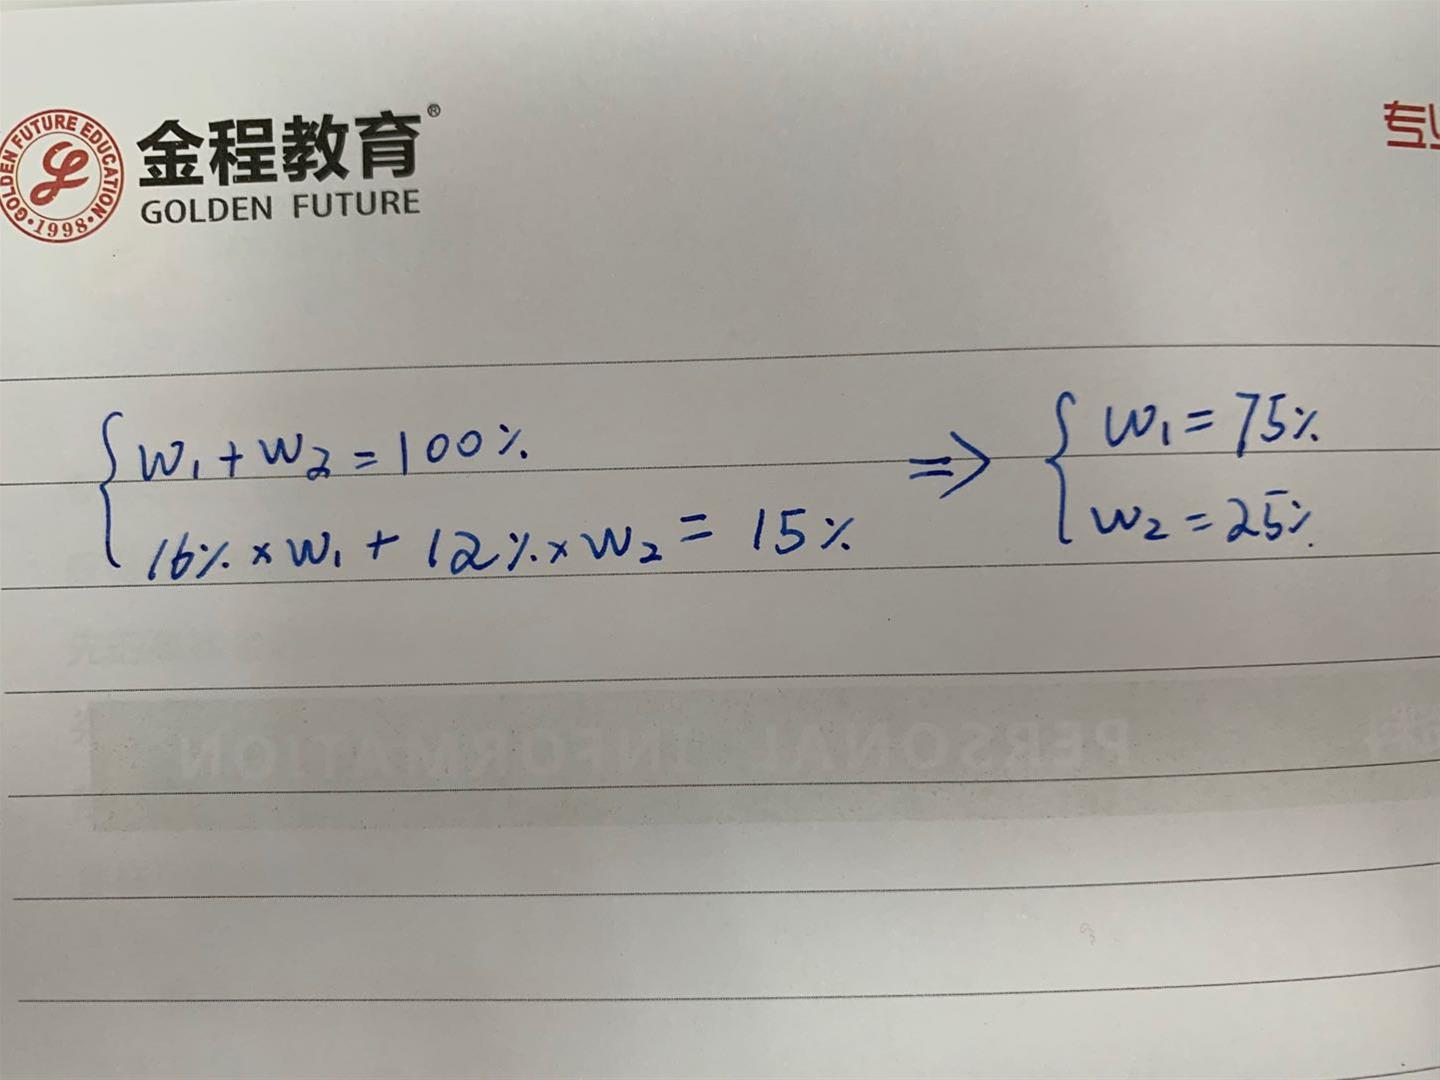 GOLDEN FUTURE EDUCATION
·1998·
金程教育®
GOLDEN FUTURE
专业
w₁+w₂=100%
16%×w₁+12%×w₂=15%
⇒
w₁=75%
w₂=25%
PERSONAL INFORMATION